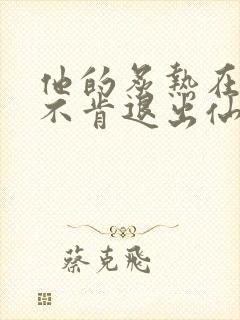 他的炙热在
不肯退出仙
蔡克飞